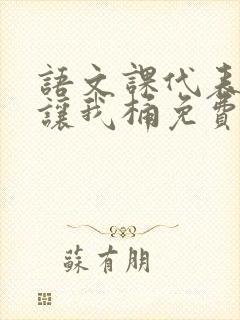 語文課代表
讓我桶免費
蘇有朋